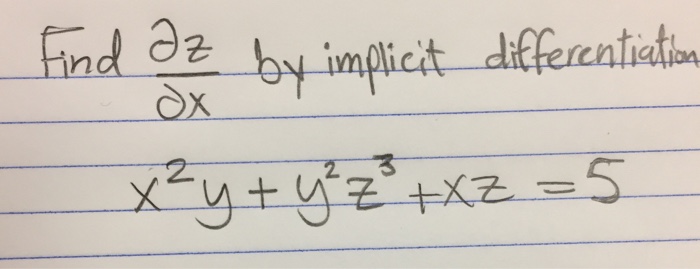 Find ∂z/∂x by implicit differentiation
x²y + y²z³ + xz = 5